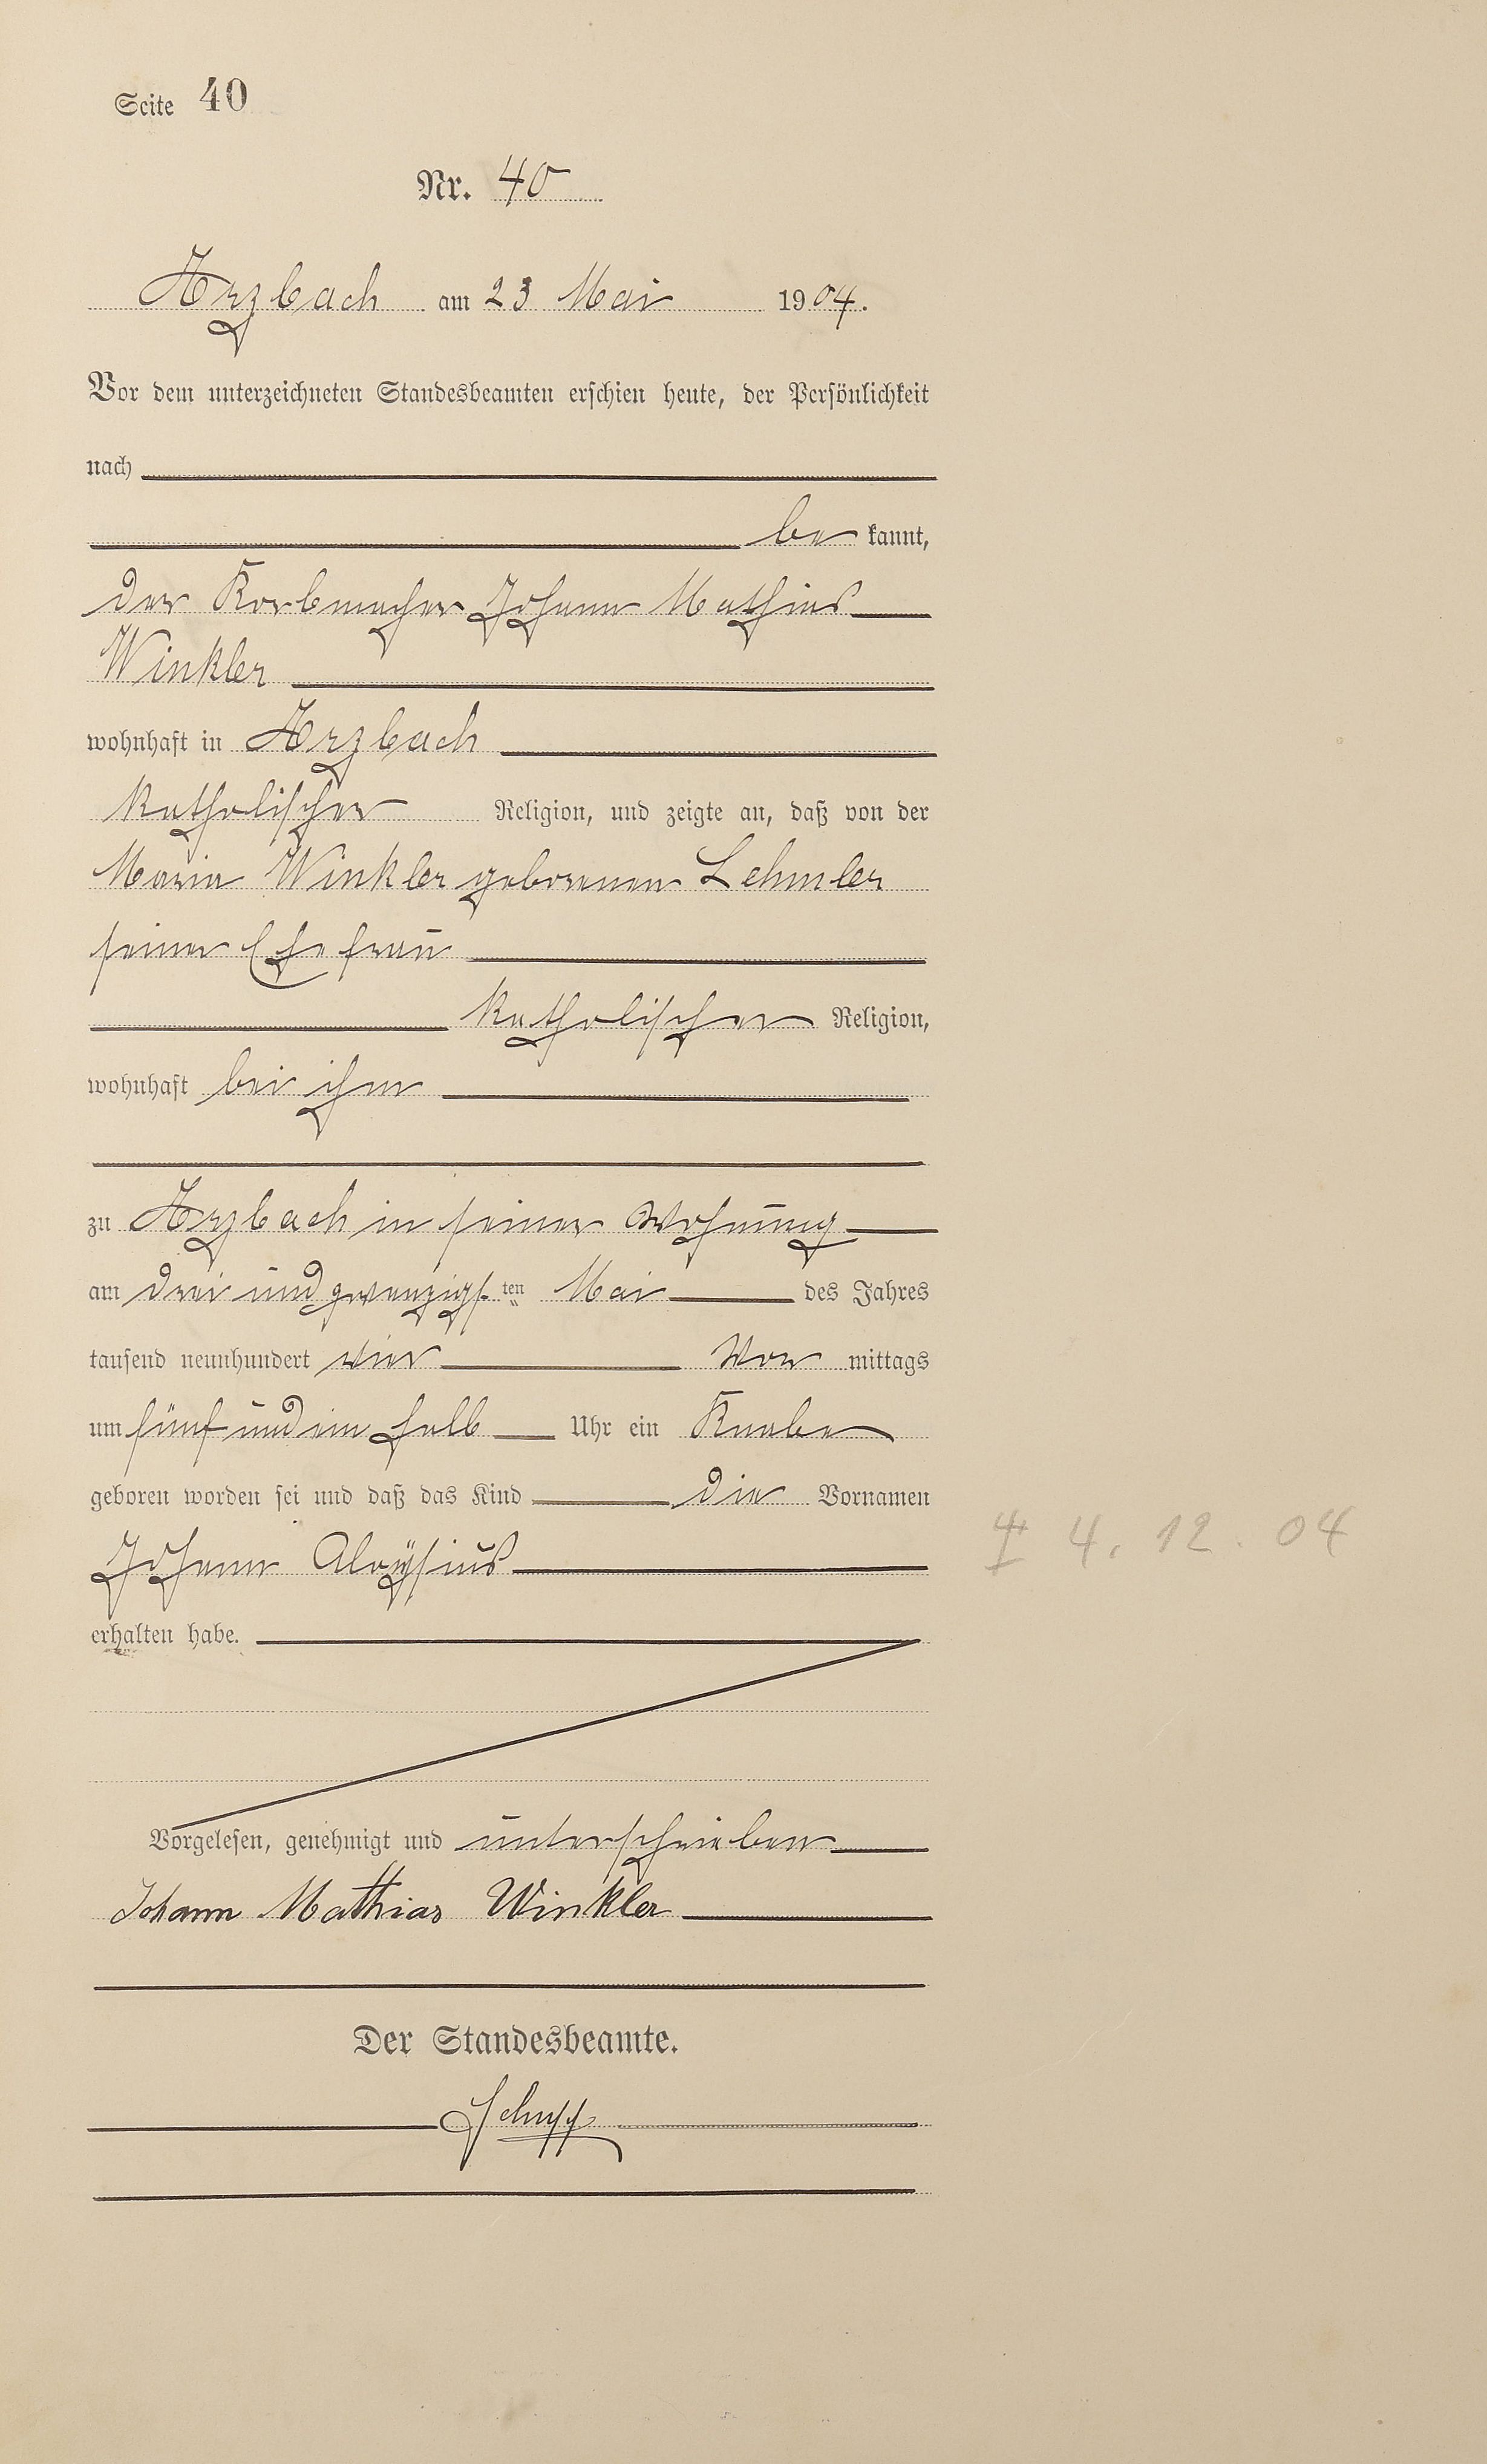 Seite 40
Nr. 40
Arzbach am 23 Mai 1904.
Vor dem unterzeichneten Standesbeamten erschien heute, der Persönlichkeit
nach
be kannt,
der Korbmacher Johann Mathias
Winkler
wohnhaft in Arzbach
katholischer Religion, und zeigte an, daß von der
Maria Winkler geborenen Lehmler
seiner Ehefrau
katholischer Religion,
wohnhaft bei ihm
zu Arzbach in seiner Wohnung
am drei und zwanzigsten Mai des Jahres
tausend neunhundert vier Vor mittags
um fünf und ein halb Uhr ein Knabe
geboren worden sei und daß das Kind die Vornamen
Johann Aloÿsius
† 4. 12. 04
erhalten habe.
Vorgelesen, genehmigt und unterschrieben
Johann Mathias Winkler
Der Standesbeamte.
Schupp